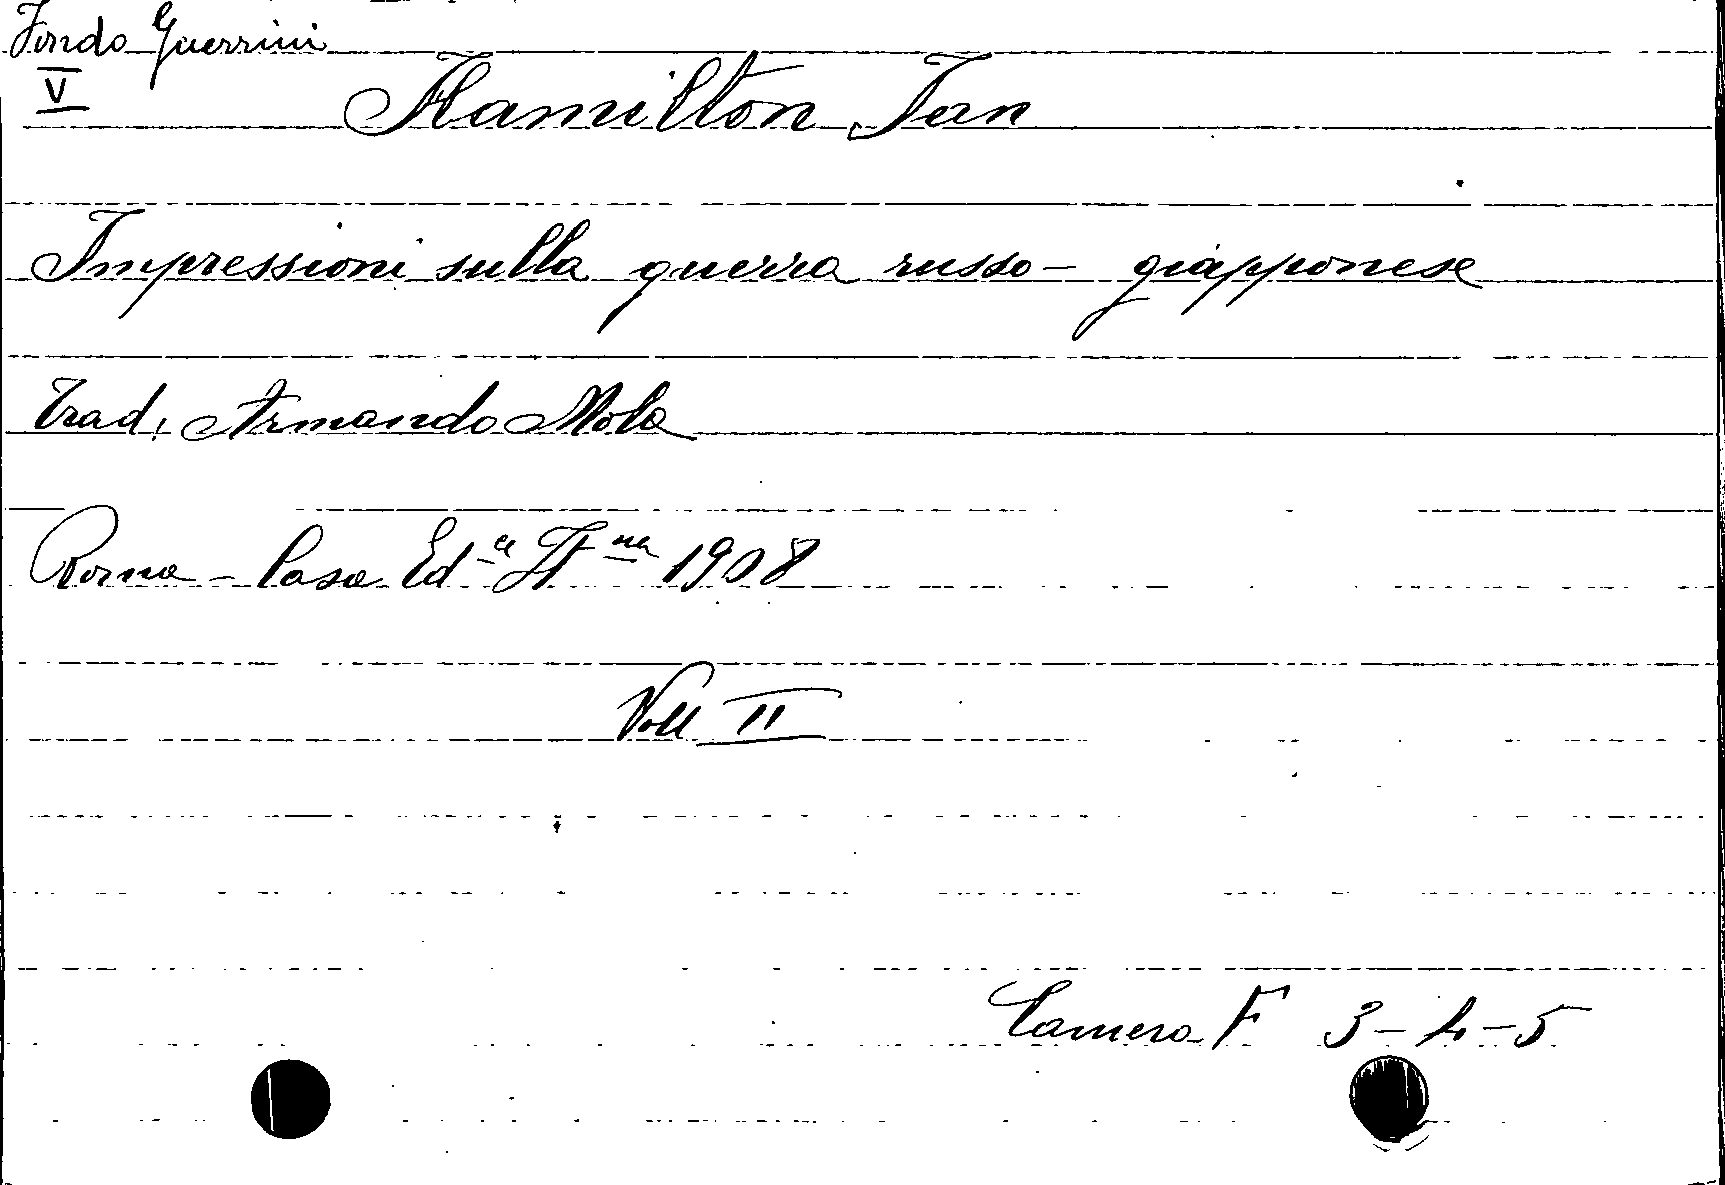 Fondo Guerrini
V
Hamilton Jan
Impressioni sulla guerra russo - giapponese
Trad. Armando Mola
Roma - Casa Ed.ce It.na 1908
Voll II
Camera F 3-4-5